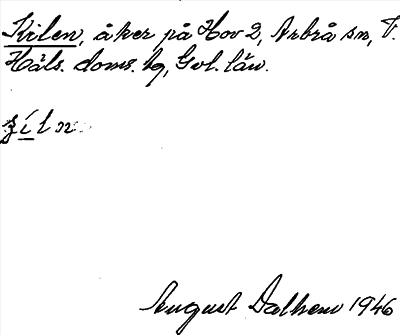 Kilen, åker på Hov 2, Arbrå sn, V.
Häls. doms. hg, Gvl. län.
August Dalhem 1946